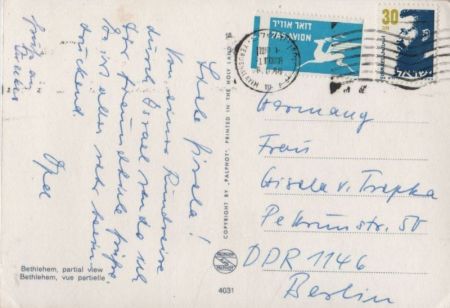 Liebe Gisela!
Von einer Rundreise
durch Israel sende ich
Dir freundliche Grüße.
Es ist alles sehr beein-
druckend.
Grüße an
Bethlehem, partial view
Bethlehem, vue partielle
COPYRIGHT BY „PALPHOT", PRINTED IN THE HOLY LAND
4031
דואר אויר
PAR AVION
30
ישראל
Germany
Frau
Gisela v. Trepka
Pekrunstr. 50
DDR 1146
Berlin